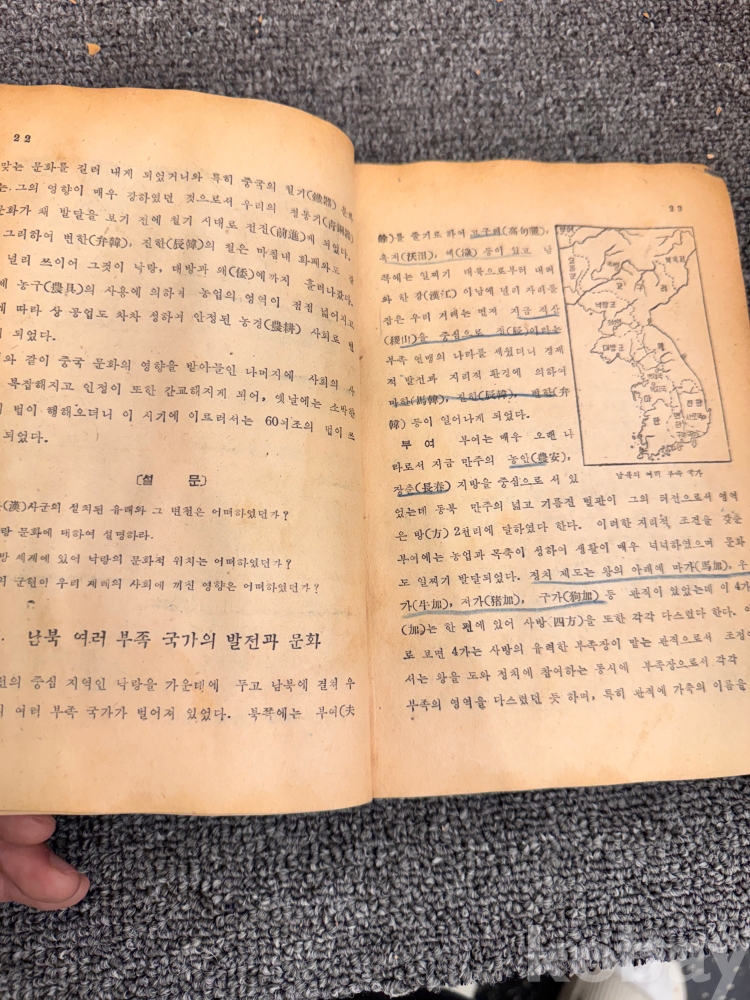 22
맞는 문화를 길러 내게 되었거니와 특히 중국의 철기(鐵器)
는, 그의 영향이 매우 강하였던 것으로서 우리의 청동기(靑銅器)
문화가 채 발달을 보기 전에 철기 시대로 전진(前進)케 되었다.
그리하여 변한(弁韓), 진한(辰韓)의 철은 마침내 화폐와도
널리 쓰이어 그것이 낙랑, 대방과 왜(倭)에까지 흘러나갔다.
농구(農具)의 사용에 의하여 농업의 영역이 점점 넓어지고
에 따라 상 공업도 차차 성하여 안정된 농경(農耕) 사회로
되었다.
와 같이 중국 문화의 영향을 받아들인 나머지에 사회의 사
복잡해지고 인정이 또한 간교해지게 되어, 옛날에는 소박한
법이 행해오더니 이 시기에 이르러서는 60여조의 법이 쓰
되었다.
〔설 문〕
(漢)사군의 설치된 유래와 그 변천은 어떠하였던가?
랑 문화에 대하여 설명하라.
방 세계에 있어 낙랑의 문화적 위치는 어떠하였던가?
군현이 우리 겨레의 사회에 끼친 영향은 어떠하였던가?
남북 여러 부족 국가의 발전과 문화
전의 중심 지역인 낙랑을 가운데에 두고 남북에 걸쳐 우
여러 부족 국가가 벌어져 있었다. 북쪽에는 부여(夫
23
餘)를 줄기로 하여 고구려(高句麗),
옥저(沃沮), 예(濊) 등이 있고 남
쪽에는 일찌기 대륙으로부터 내려
와 한 강(漢江) 이남에 널리 자리를
잡은 우리 겨레는 먼저 지금 직산
(稷山)을 중심으로 진(辰)이라는
부족 연맹의 나라를 세웠더니 경제
적 발전과 지리적 환경에 의하여
마한(馬韓), 진한(辰韓), 변한(弁
韓) 등이 일어나게 되었다.
부여
낙랑군
대방군
남북의 여러 부족 국가
부 여 부여는 매우 오랜 나
라로서 지금 만주의 농안(農安),
장춘(長春) 지방을 중심으로 서 있
었는데 동북 만주의 넓고 기름진 벌판이 그의 터전으로서 영역
은 방(方) 2천리에 달하였다 한다. 이러한 지리적 조건을 갖춘
부여에는 농업과 목축이 성하여 생활이 매우 넉넉하였으며 문화
도 일찌기 발달되었다. 정치 제도는 왕의 아래에 마가(馬加), 우
가(牛加), 저가(猪加), 구가(狗加) 등 관직이 있었는데 이 4가
(加)는 한 편에 있어 사방(四方)을 또한 각각 다스렸다 한다.
로 보면 4가는 사방의 유력한 부족장이 맡는 관직으로서 조정
서는 왕을 도와 정치에 참여하는 동시에 부족장으로서 각각
부족의 영역을 다스렸던 듯 하며, 특히 관직에 가축의 이름을
kobay